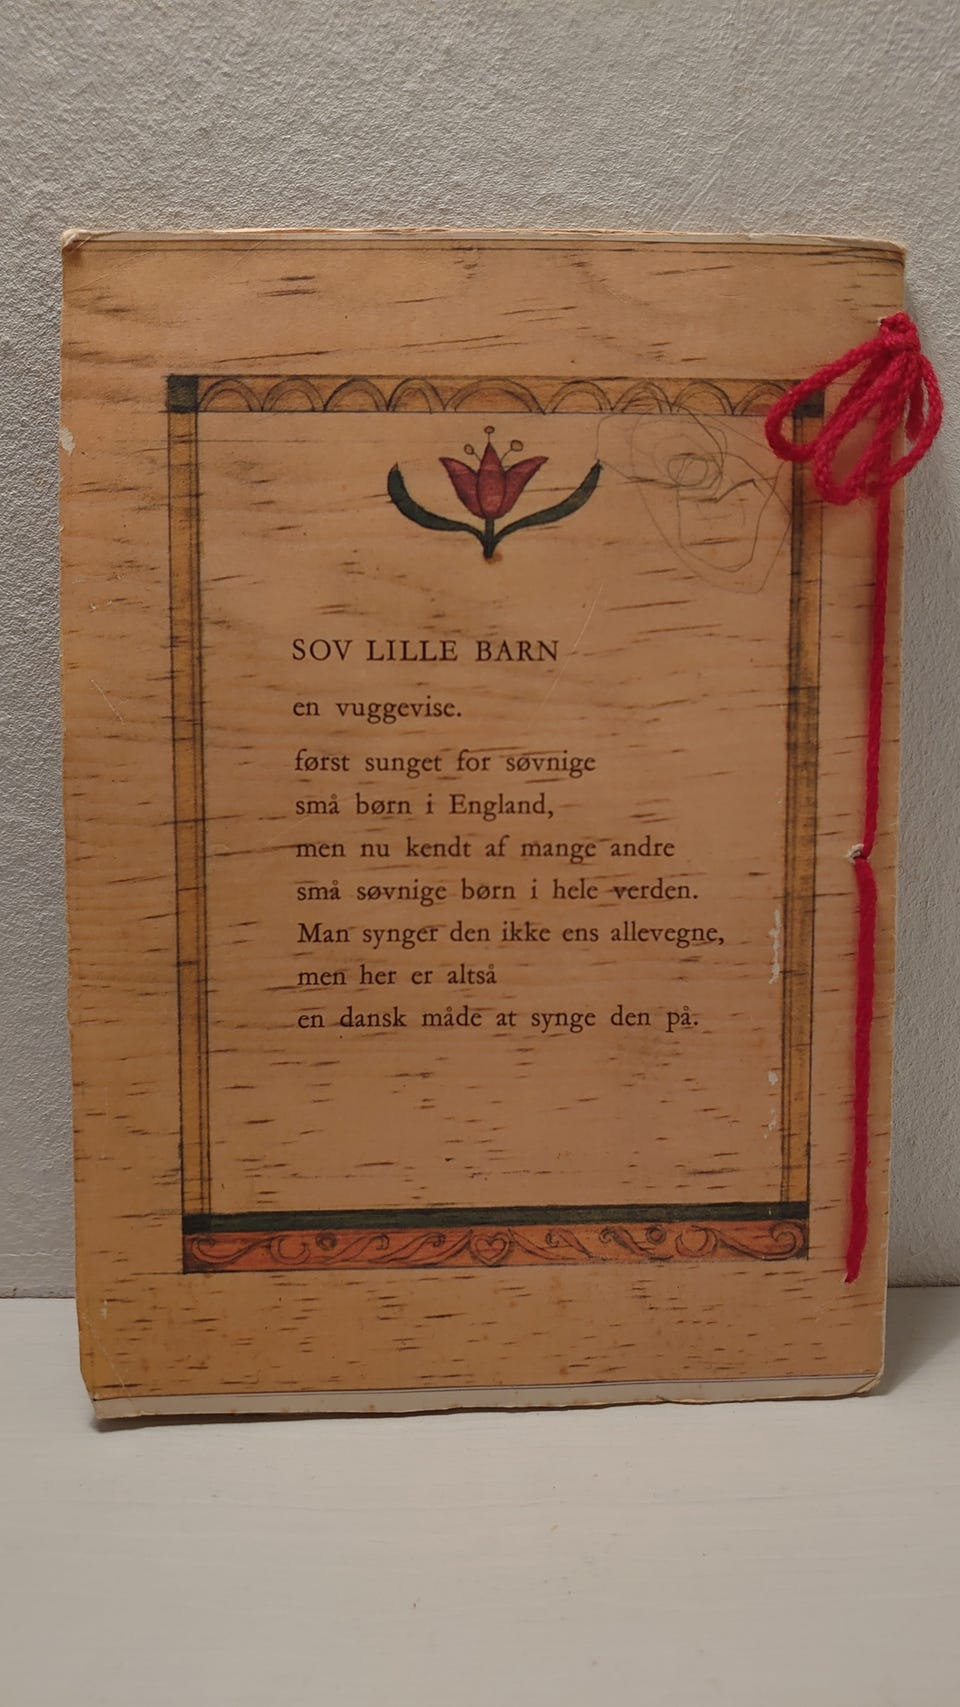 SOV LILLE BARN
en vuggevise.
først sunget for søvnige
små børn i England,
men nu kendt af mange andre
små søvnige børn i hele verden.
Man synger den ikke ens allevegne,
men her er altså
en dansk måde at synge den på.